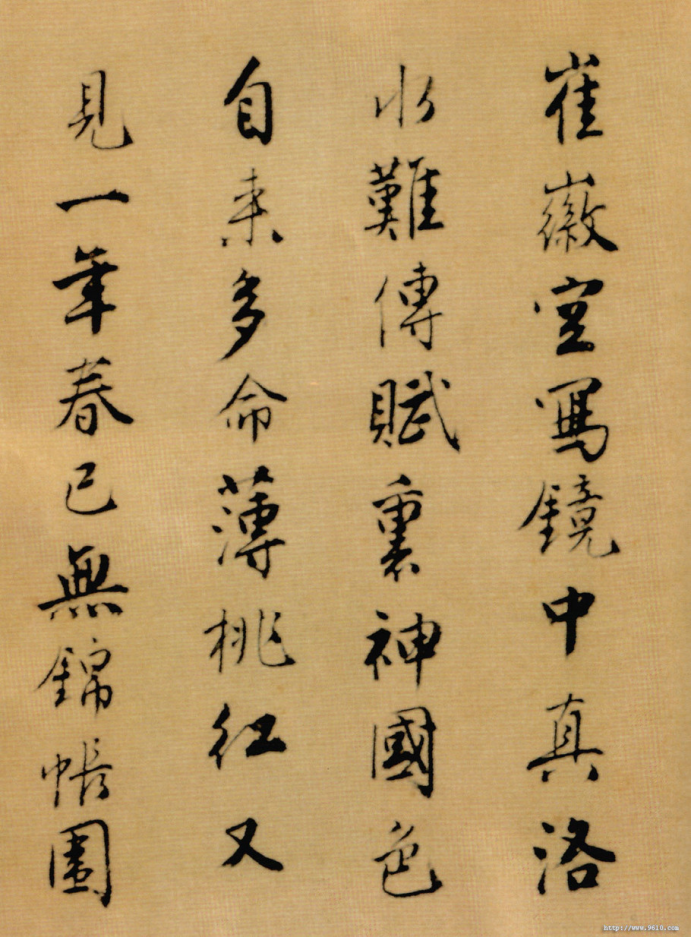 崔徽空寫鏡中真洛
水難傳賦裏神國色
自來多命薄桃紅又
見一年春已無錦帳圍
http://www.9610.com